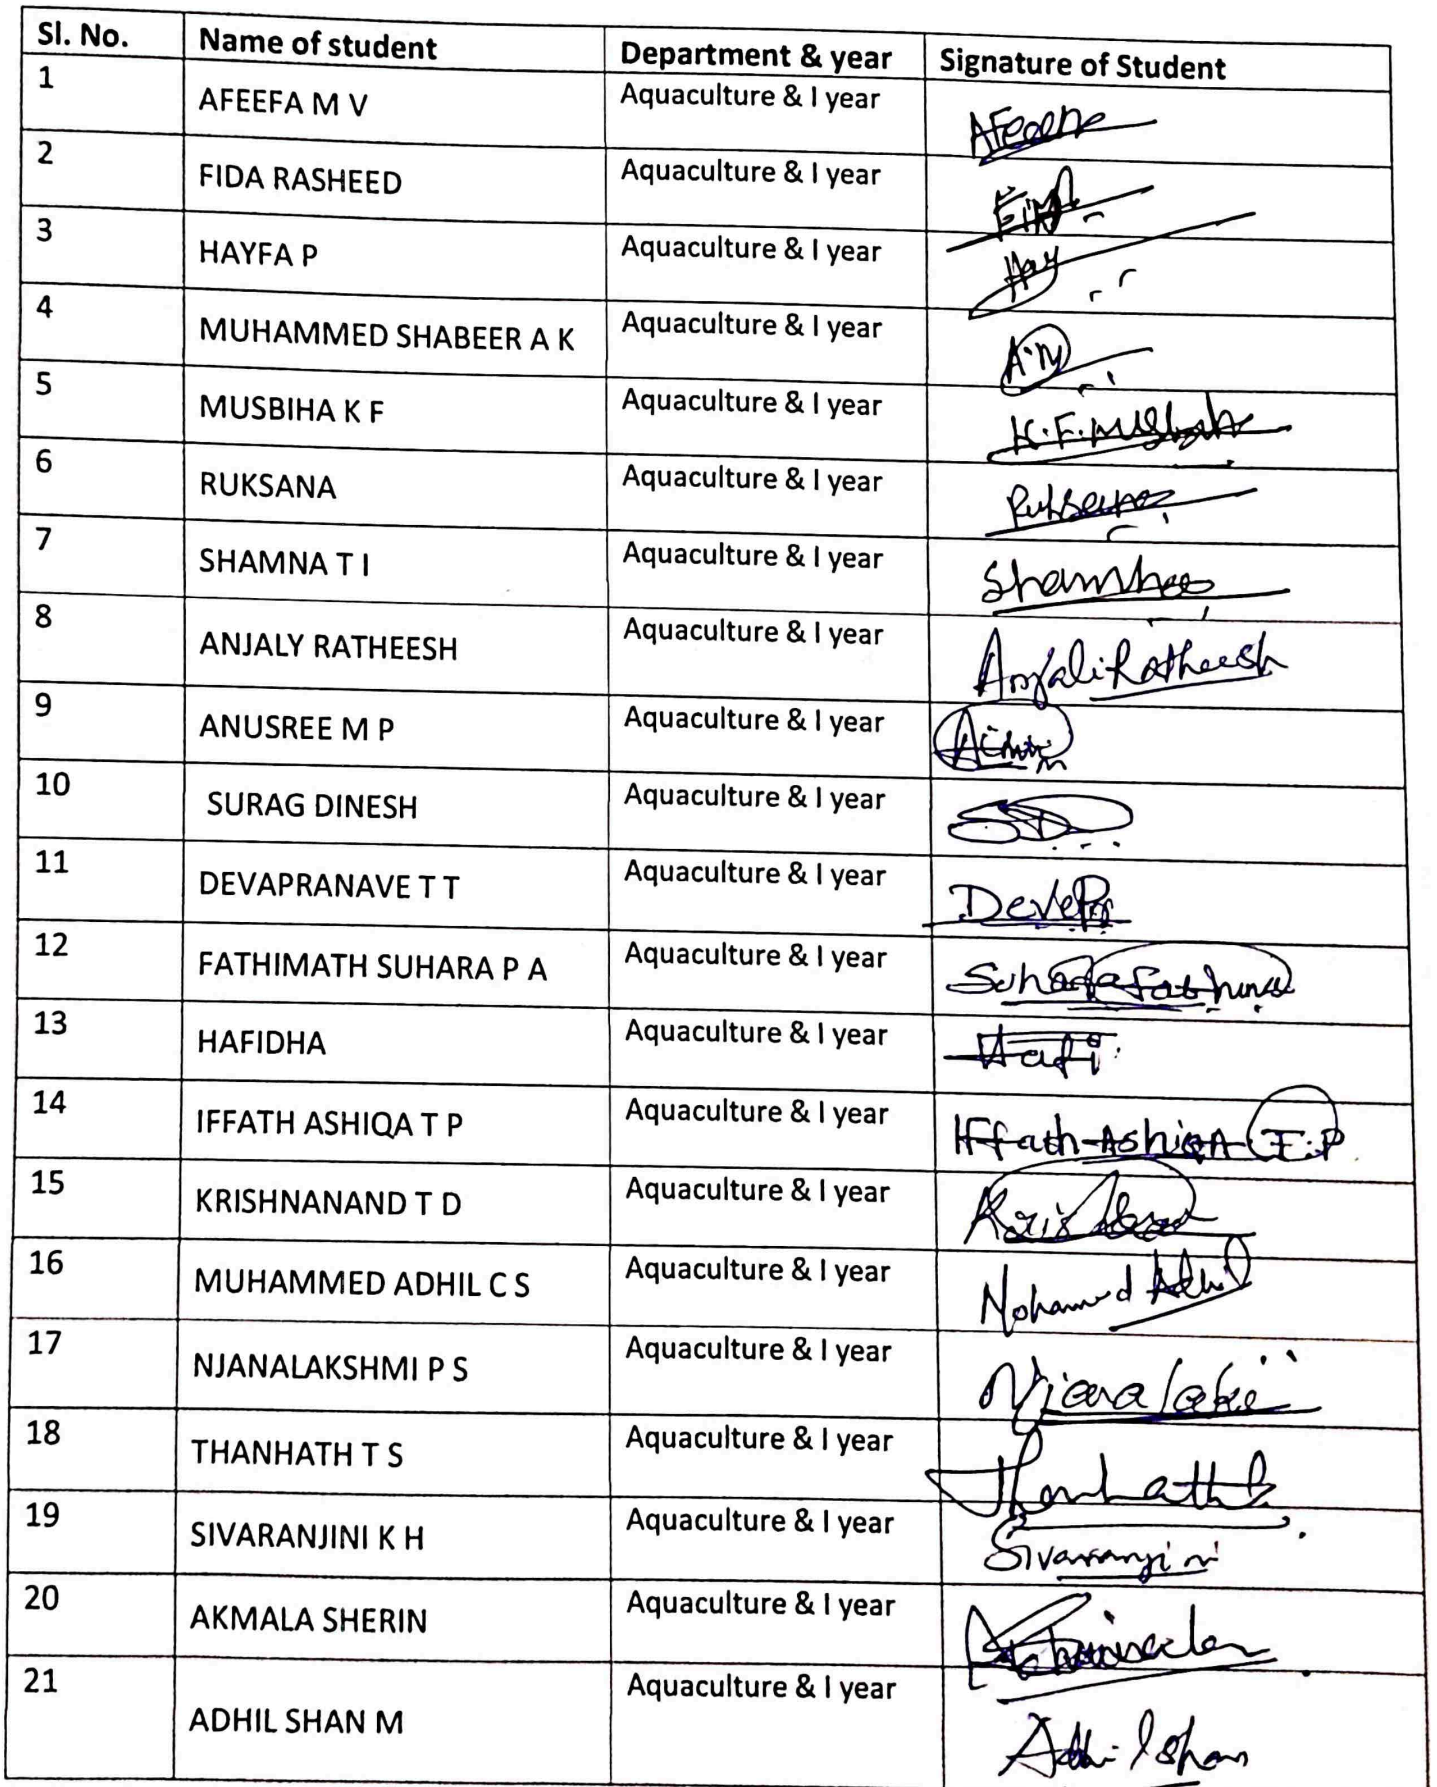 Sl. No. Name of student Department & year Signature of Student
1 AFEEFA M V Aquaculture & I year
2 FIDA RASHEED Aquaculture & I year
3 HAYFA P Aquaculture & I year Hay
4 MUHAMMED SHABEER A K Aquaculture & I year A.M
5 MUSBIHA K F Aquaculture & I year K.F.
6 RUKSANA Aquaculture & I year
7 SHAMNA T I Aquaculture & I year
8 ANJALY RATHEESH Aquaculture & I year Anjali Ratheesh
9 ANUSREE M P Aquaculture & I year
10 SURAG DINESH Aquaculture & I year SD
11 DEVAPRANAVE T T Aquaculture & I year
12 FATHIMATH SUHARA P A Aquaculture & I year Suhara Fathima
13 HAFIDHA Aquaculture & I year Hafi
14 IFFATH ASHIQA T P Aquaculture & I year Iffath Ashiqa T.P
15 KRISHNANAND T D Aquaculture & I year
16 MUHAMMED ADHIL C S Aquaculture & I year Mohamed Adhil
17 NJANALAKSHMI P S Aquaculture & I year
18 THANHATH T S Aquaculture & I year
19 SIVARANJINI K H Aquaculture & I year Sivaranjini
20 AKMALA SHERIN Aquaculture & I year
21 ADHIL SHAN M Aquaculture & I year Adhil Shan